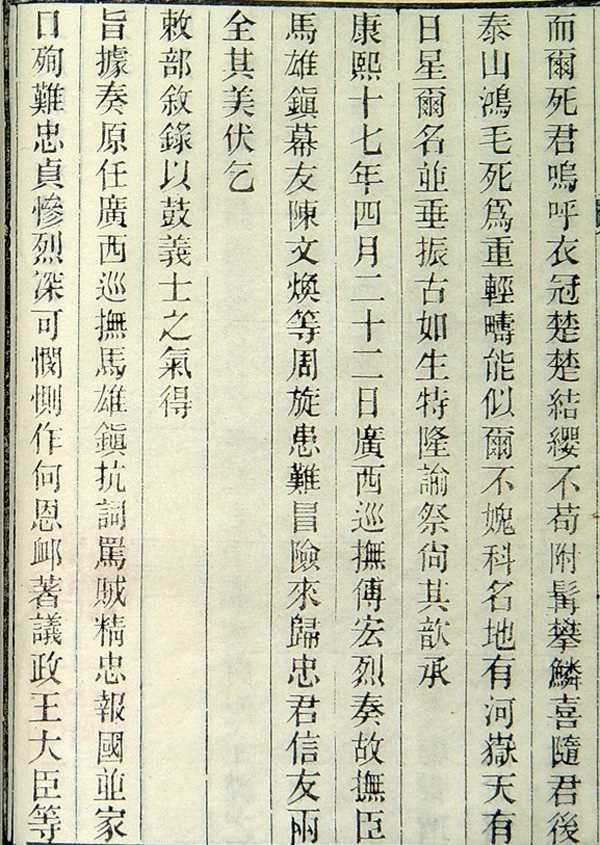 而爾死君嗚呼衣冠楚楚結纓不苟附髯攀鱗喜隨君後
泰山鴻毛死爲重輕疇能似爾不媿科名地有河嶽天有
日星爾名並垂振古如生特隆諭祭尙其歆承
康熙十七年四月二十二日廣西巡撫傅宏烈奏故撫臣
馬雄鎭幕友陳文煥等周旋患難冒險來歸忠君信友兩
全其美伏乞
敕部敘錄以鼓義士之氣得
旨據奏原任廣西巡撫馬雄鎭抗詞罵賊精忠報國並家
口殉難忠貞慘烈深可憫惻作何恩卹著議政王大臣等